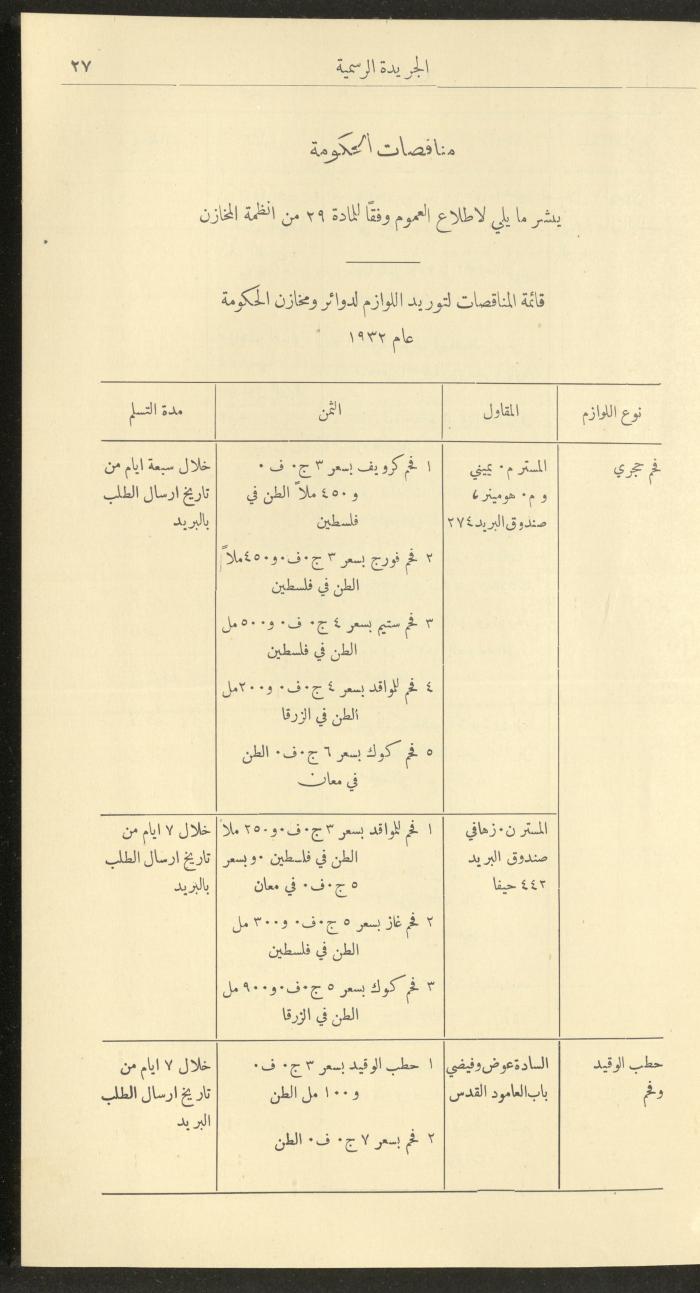 الجريدة الرسمية
٢٧
مناقصات الحكومة
ينشر ما يلي لاطلاع العموم وفقًا للمادة ٢٩ من انظمة المخازن
قائمة المناقصات لتوريد اللوازم لدوائر ومخازن الحكومة
عام ١٩٣٢
نوع اللوازم
المقاول
الثمن
مدة التسلم
فحم حجري
المستر م٠ يميني
و م٠ هومينر،
صندوق البريد ٢٧٤
١ فحم كرويف بسعر ٣ ج٠ ف٠
و ٤٥٠ ملاً الطن في
فلسطين
٢ فحم فورج بسعر ٣ ج٠ف٠و٤٥٠ملاً
الطن في فلسطين
٣ فحم ستيم بسعر ٤ ج٠ ف٠ و٥٠٠ مل
الطن في فلسطين
٤ فحم للمواقد بسعر ٤ ج٠ف٠ و٢٠٠مل
الطن في الزرقا
٥ فحم كوك بسعر ٦ ج٠ف٠ الطن
في معان
خلال سبعة ايام من
تاريخ ارسال الطلب
بالبريد
المستر ن٠ زهافي
صندوق البريد
٤٤٢ حيفا
١ فحم للمواقد بسعر ٣ ج٠ف٠و٢٥٠ ملاً
الطن في فلسطين ٠وبسعر
٥ ج٠ف٠ في معان
٢ فحم غاز بسعر ٥ ج٠ف٠ و٣٠٠ مل
الطن في فلسطين
٣ فحم كوك بسعر ٥ ج٠ف٠و٩٠٠ مل
الطن في الزرقا
خلال ٧ ايام من
تاريخ ارسال الطلب
بالبريد
حطب الوقيد
وفحم
السادة عوض وفيضي
باب العامود القدس
١ حطب الوقيد بسعر ٣ ج٠ ف٠
و١٠٠ مل الطن
٢ فحم بسعر ٧ ج٠ ف٠ الطن
خلال ٧ ايام من
تاريخ ارسال الطلب
البريد